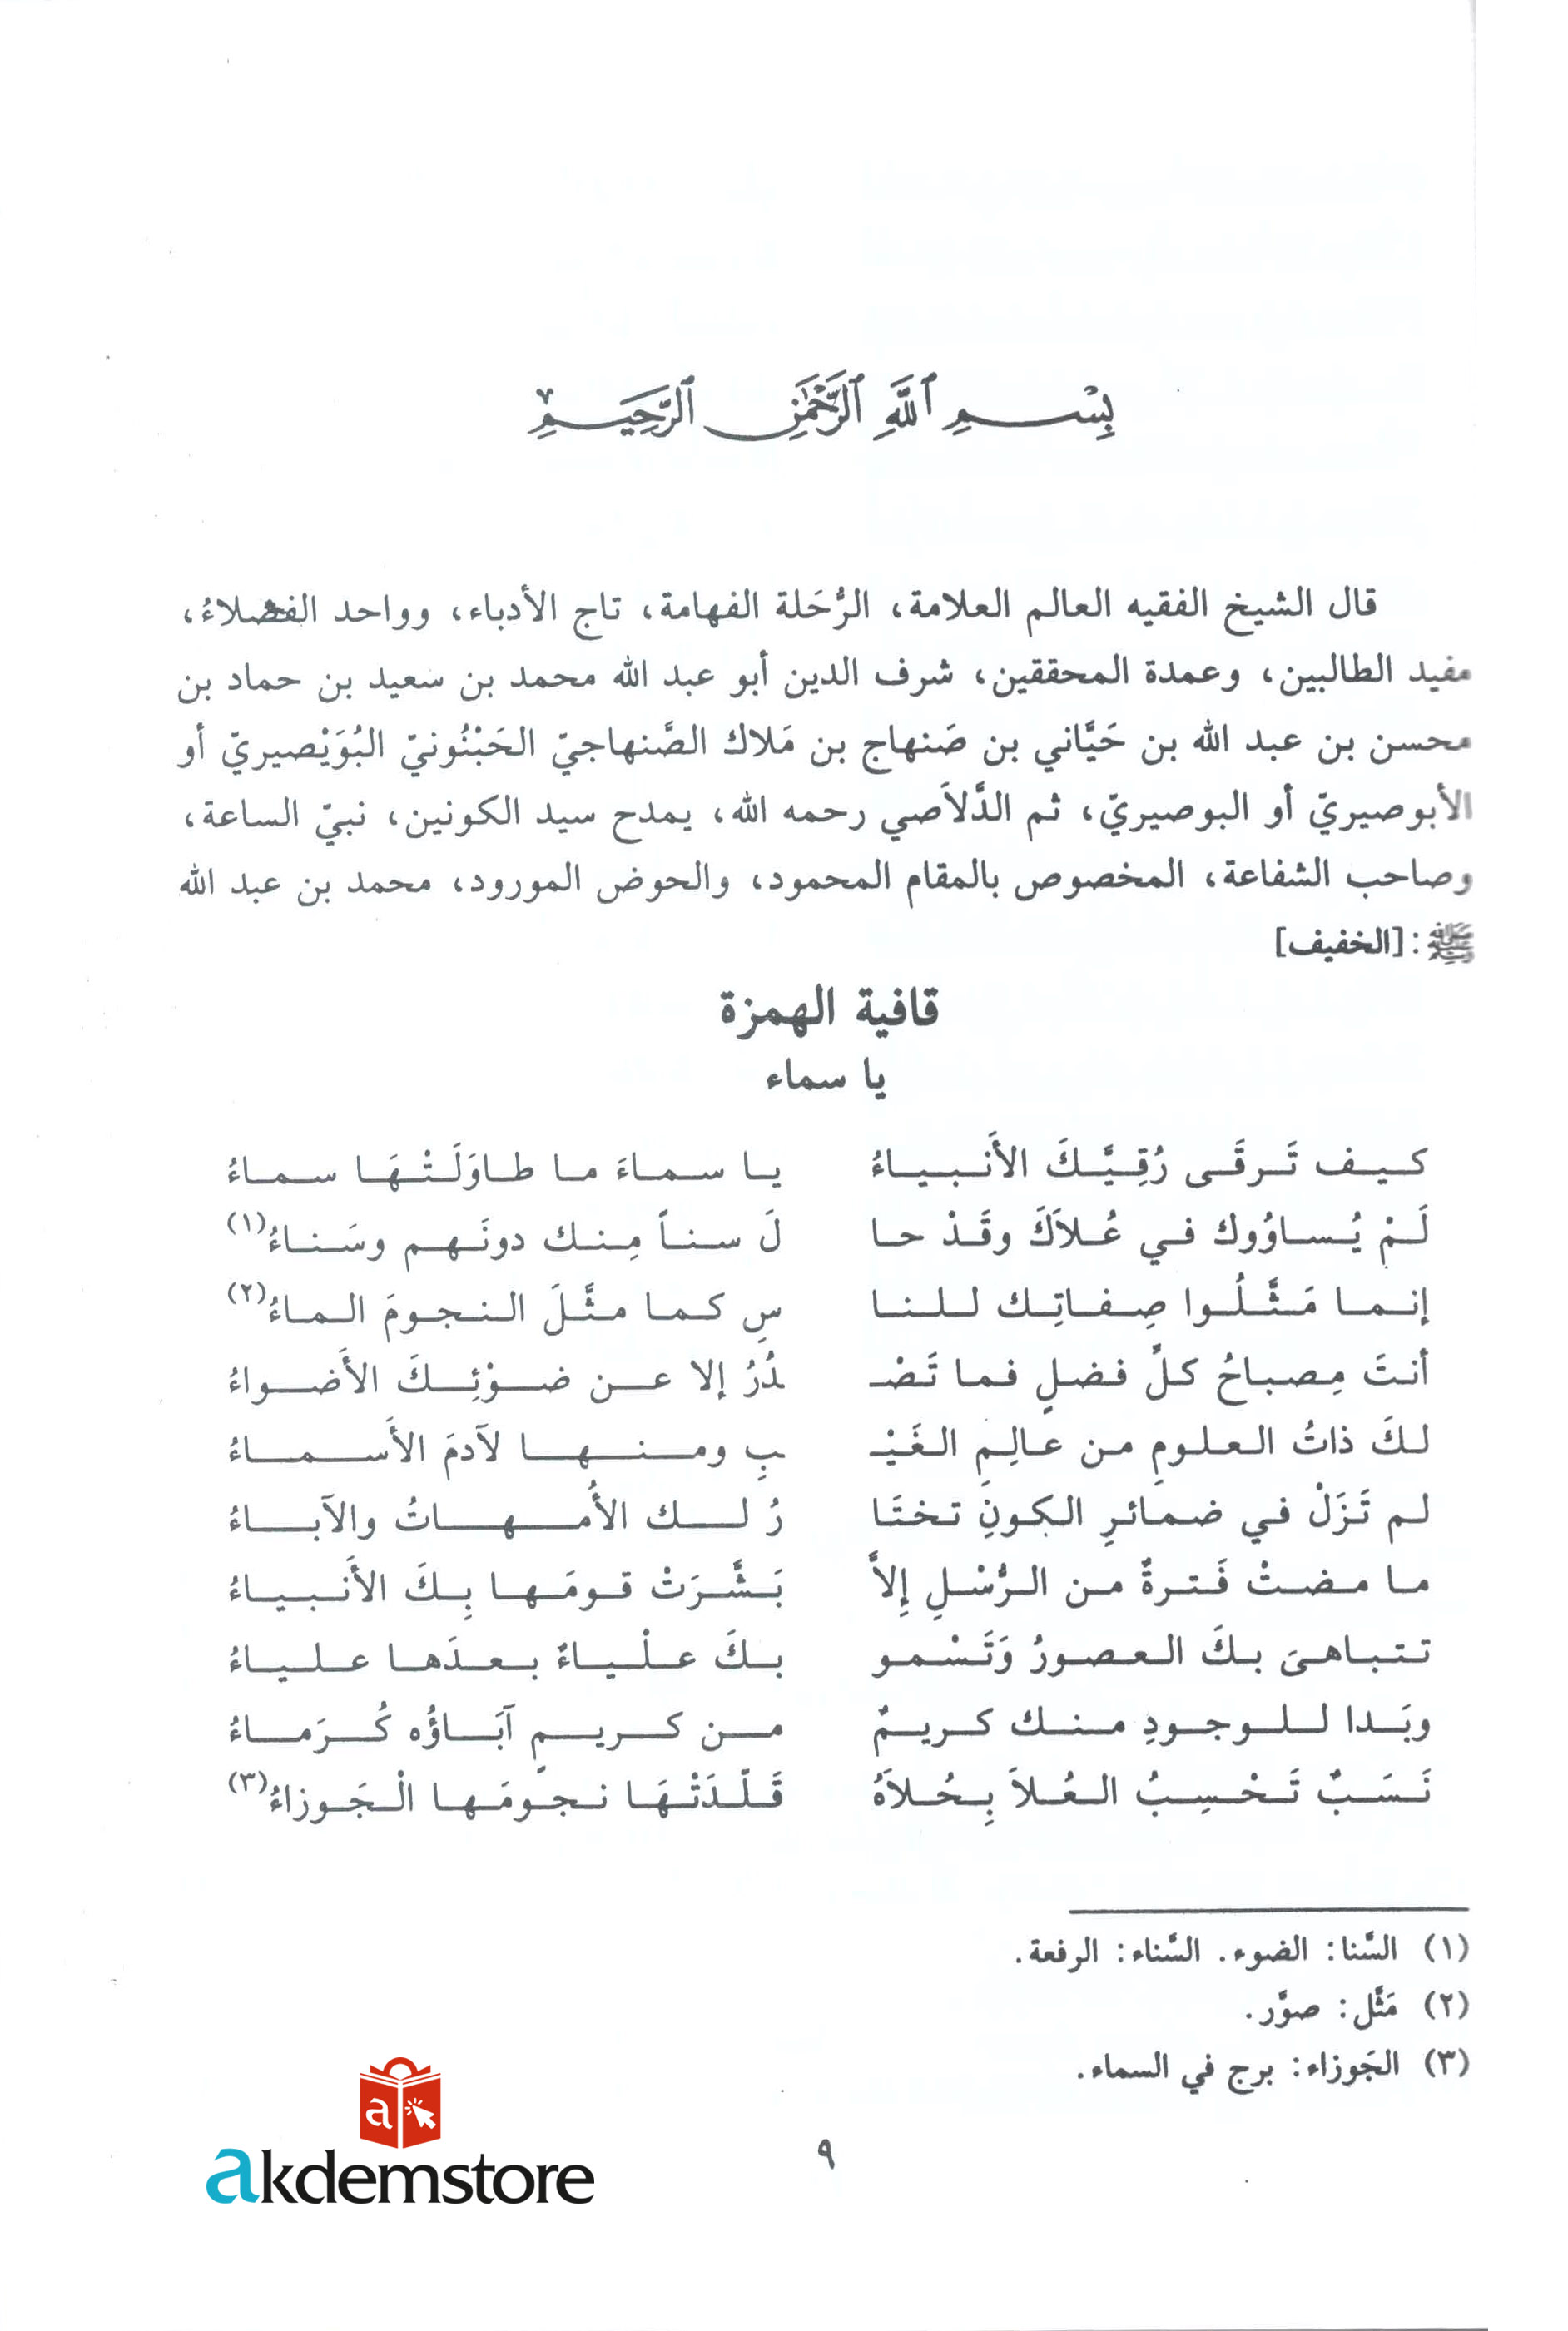 بِسْمِ ٱللَّهِ ٱلرَّحْمَٰنِ ٱلرَّحِيمِ
قال الشيخ الفقيه العالم العلامة، الرُّحَلة الفهامة، تاج الأدباء، وواحد الفضلاءُ،
مفيد الطالبين، وعمدة المحققين، شرف الدين أبو عبد الله محمد بن سعيد بن حماد بن
محسن بن عبد الله بن حَيَّاني بن صَنهاج بن مَلاك الصَّنهاجيّ الحَبْنُونيّ البُوَيْصيريّ أو
الأبوصيريّ أو البوصيريّ، ثم الدَّلاَصي رحمه الله، يمدح سيد الكونين، نبيّ الساعة،
وصاحب الشفاعة، المخصوص بالمقام المحمود، والحوض المورود، محمد بن عبد الله
ﷺ: [الخفيف]
قافية الهمزة
يا سماء
كيف تَرقَى رُقِيَّكَ الأَنبياءُ يا سماءَ ما طاوَلَتْهَا سماءُ
لَمْ يُساوُوك في عُلاَكَ وقَدْ حا لَ سناً مِنك دونَهم وسَناءُ(١)
إنما مَثَّلُوا صِفاتِك للنا سِ كما مثَّلَ النجومَ الماءُ(٢)
أنتَ مِصباحُ كلِّ فضلٍ فما تَصْـ ـدُرُ إلا عن ضوْئِكَ الأَضواءُ
لكَ ذاتُ العلومِ من عالِمِ الغَيْـ ـبِ ومنها لآدمَ الأَسماءُ
لم تَزَلْ في ضمائرِ الكونِ تختَا رُ لك الأُمهاتُ والآباءُ
ما مضتْ فَترةٌ من الرُّسْلِ إِلاَّ بَشَّرَتْ قومَها بِكَ الأَنبياءُ
تتباهىَ بكَ العصورُ وَتَسْمو بكَ علْياءٌ بعدَها علياءُ
وبَدا للوجودِ منك كريمٌ من كريمٍ آبَاؤُه كُرَماءُ
نَسَبٌ تَحْسِبُ العُلاَ بِحُلاَهُ قَلَّدَتْهَا نجومَها الْجَوزاءُ(٣)
(١) السَّنا: الضوء. السَّناء: الرفعة.
(٢) مَثَّل: صوَّر.
(٣) الجَوزاء: برج في السماء.
a
akdemstore
٩